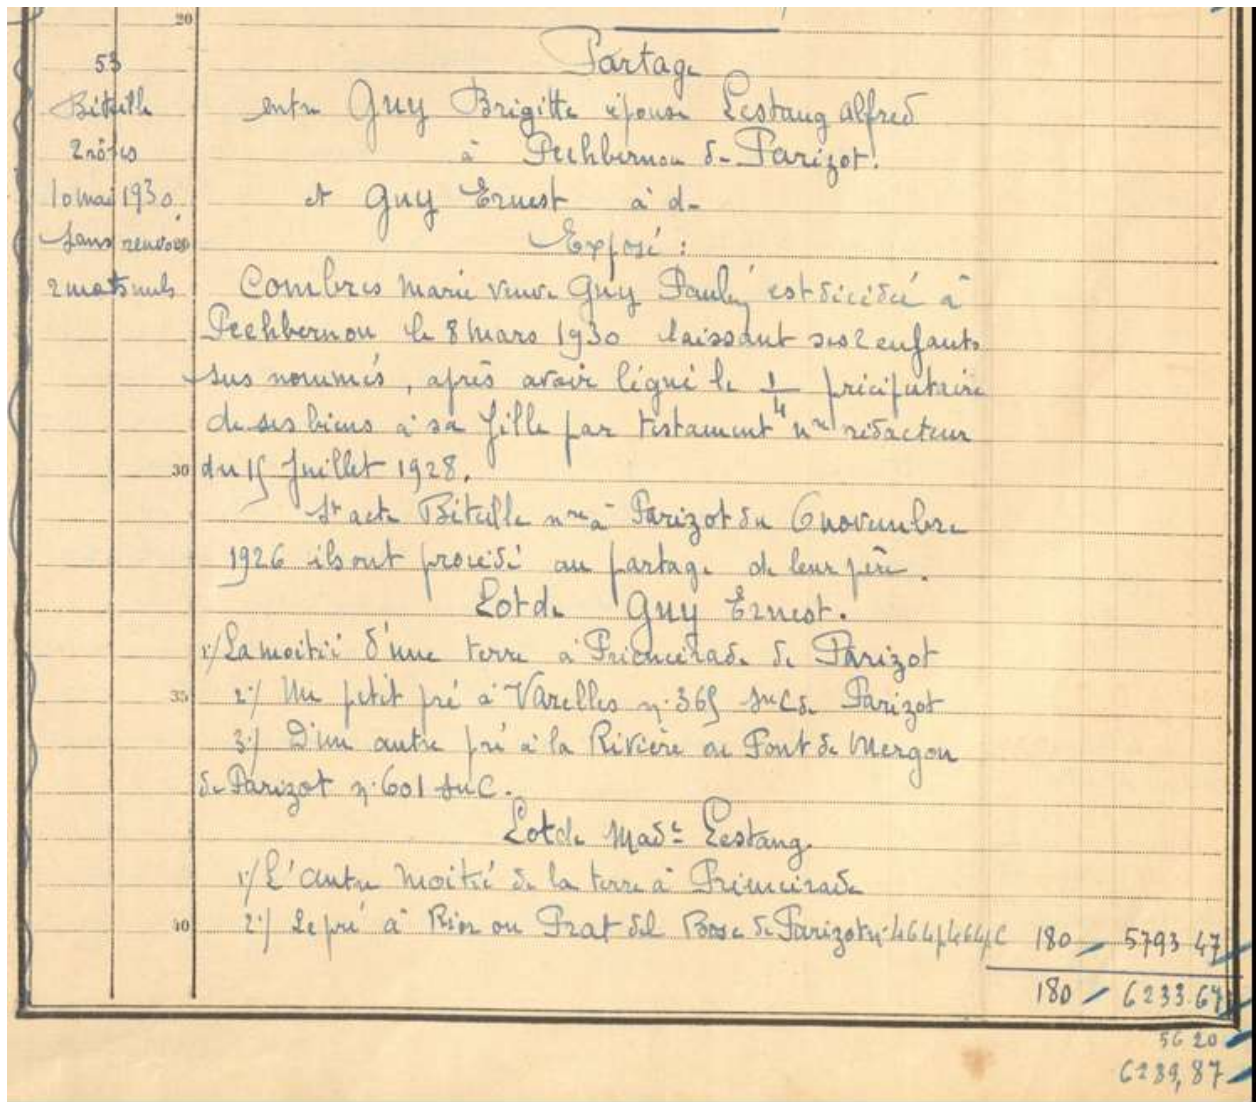 20
Partage
53
Bétille
entre Guy Brigitte épouse Lestang Alfred
2 rôles
à Pechbernou de Parizot.
10 mai 1930
et Guy Ernest à d-
sans renvois
Exposé :
2 mots nuls
Combres Marie veuve Guy Paul, est décédée à
Pechbernou le 8 mars 1930 laissant ses 2 enfants
sus nommés, après avoir légué le 1/4 préciputaire
de ses biens à sa fille par testament nre rédacteur
30
du 15 Juillet 1928.
St acte Bétille nre à Parizot du 6 novembre
1926 ils ont procédé au partage de leur père.
Lot de Guy Ernest.
1:/ La moitié d'une terre à de Parizot
35
2:/ Un petit pré à Varelles n: 365 son C de Parizot
3:/ D'un autre pré à la Rivière ou Font de Mergou
de Parizot n: 601 son C.
Lot de Made Lestang.
1:/ L'autre moitié de la terre à
40
2:/ Le pré à ou Prat del Bosc de Parizot n: 464 p 464 p C 180 5793 47
180 6233.67
56 20
6289,87